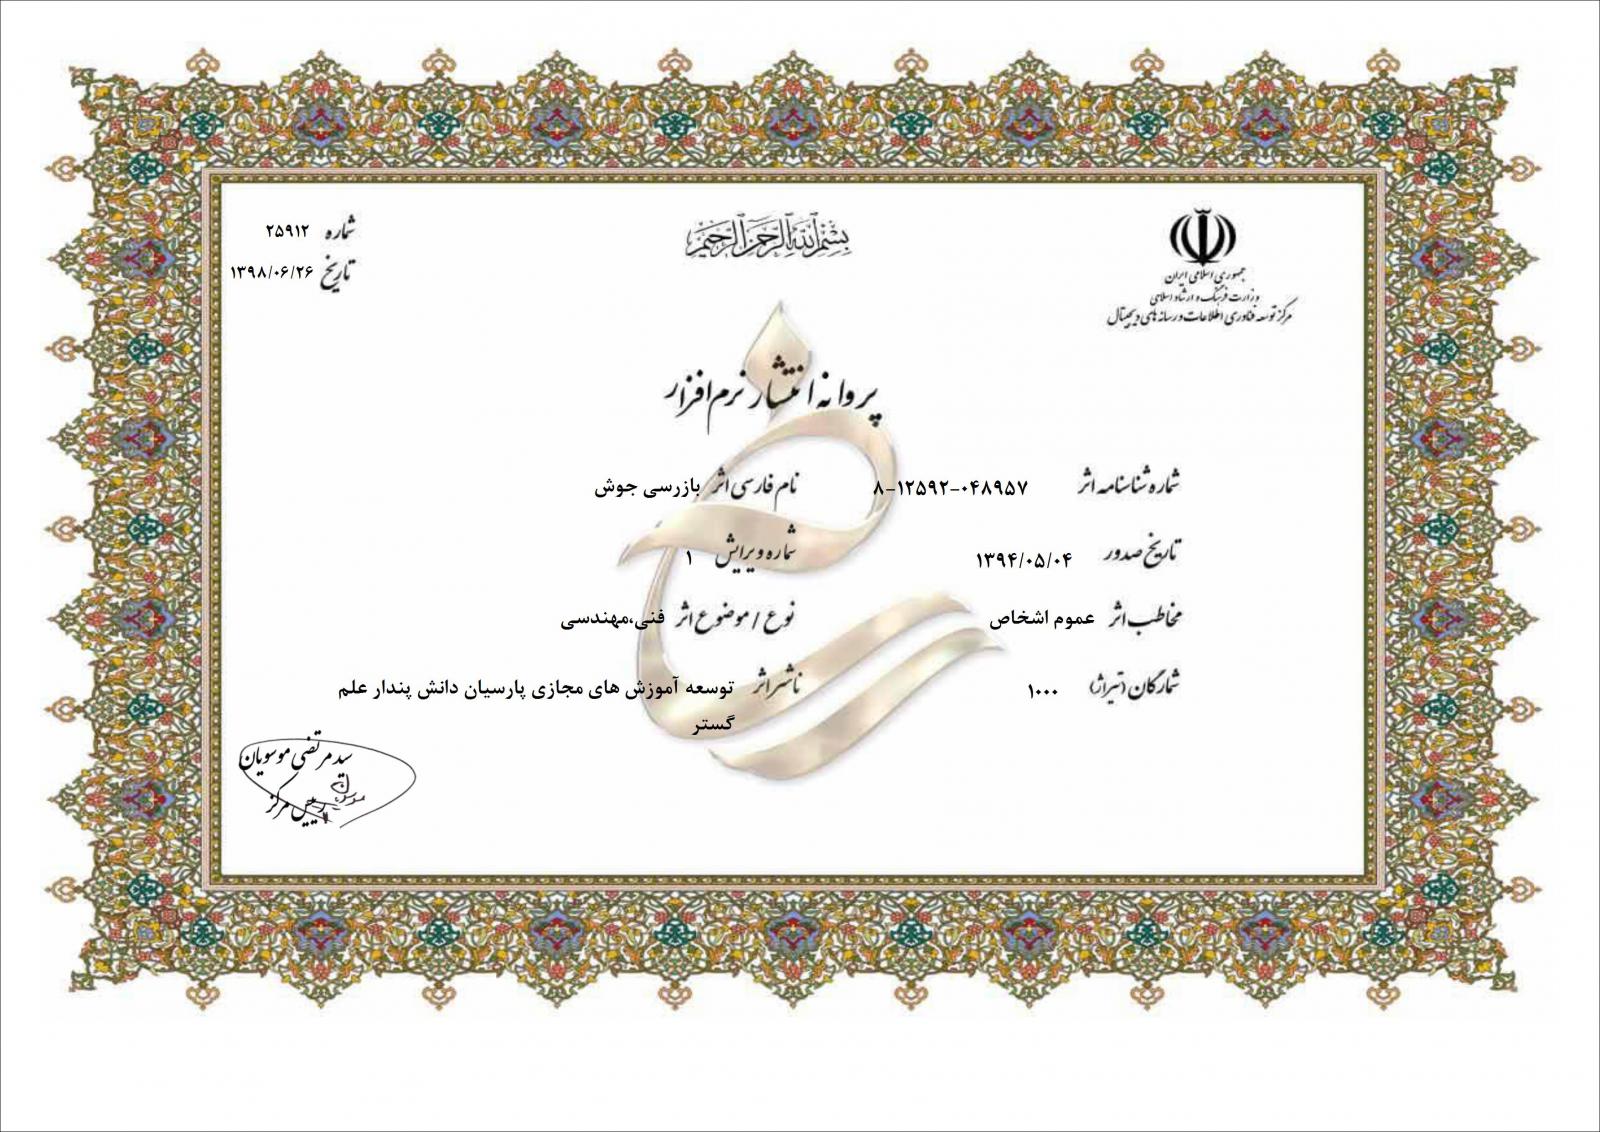 بسم الله الرحمن الرحیم
جمهوری اسلامی ایران
وزارت فرهنگ و ارشاد اسلامی
مرکز توسعه فناوری اطلاعات و رسانه های دیجیتال
شماره ۲۵۹۱۲
تاریخ ۱۳۹۸/۰۶/۲۶
پروانه انتشار نرم افزار
شماره شناسنامه اثر ۸-۱۲۵۹۲-۰۴۸۹۵۷
نام فارسی اثر بازرسی جوش
تاریخ صدور ۱۳۹۴/۰۵/۰۴
شماره ویرایش ۱
مخاطب اثر عموم اشخاص
نوع / موضوع اثر فنی،مهندسی
شمارگان (تیراژ) ۱۰۰۰
ناشر اثر توسعه آموزش های مجازی پارسیان دانش پندار علم
گستر
سید مرتضی موسویان
رییس مرکز